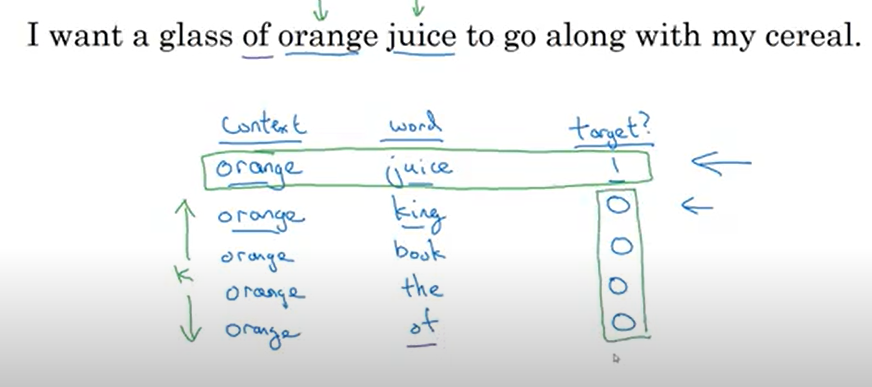 I want a glass of orange juice to go along with my cereal.
context word target?
orange juice 1
orange king 0
orange book 0
K
orange the 0
orange of 0